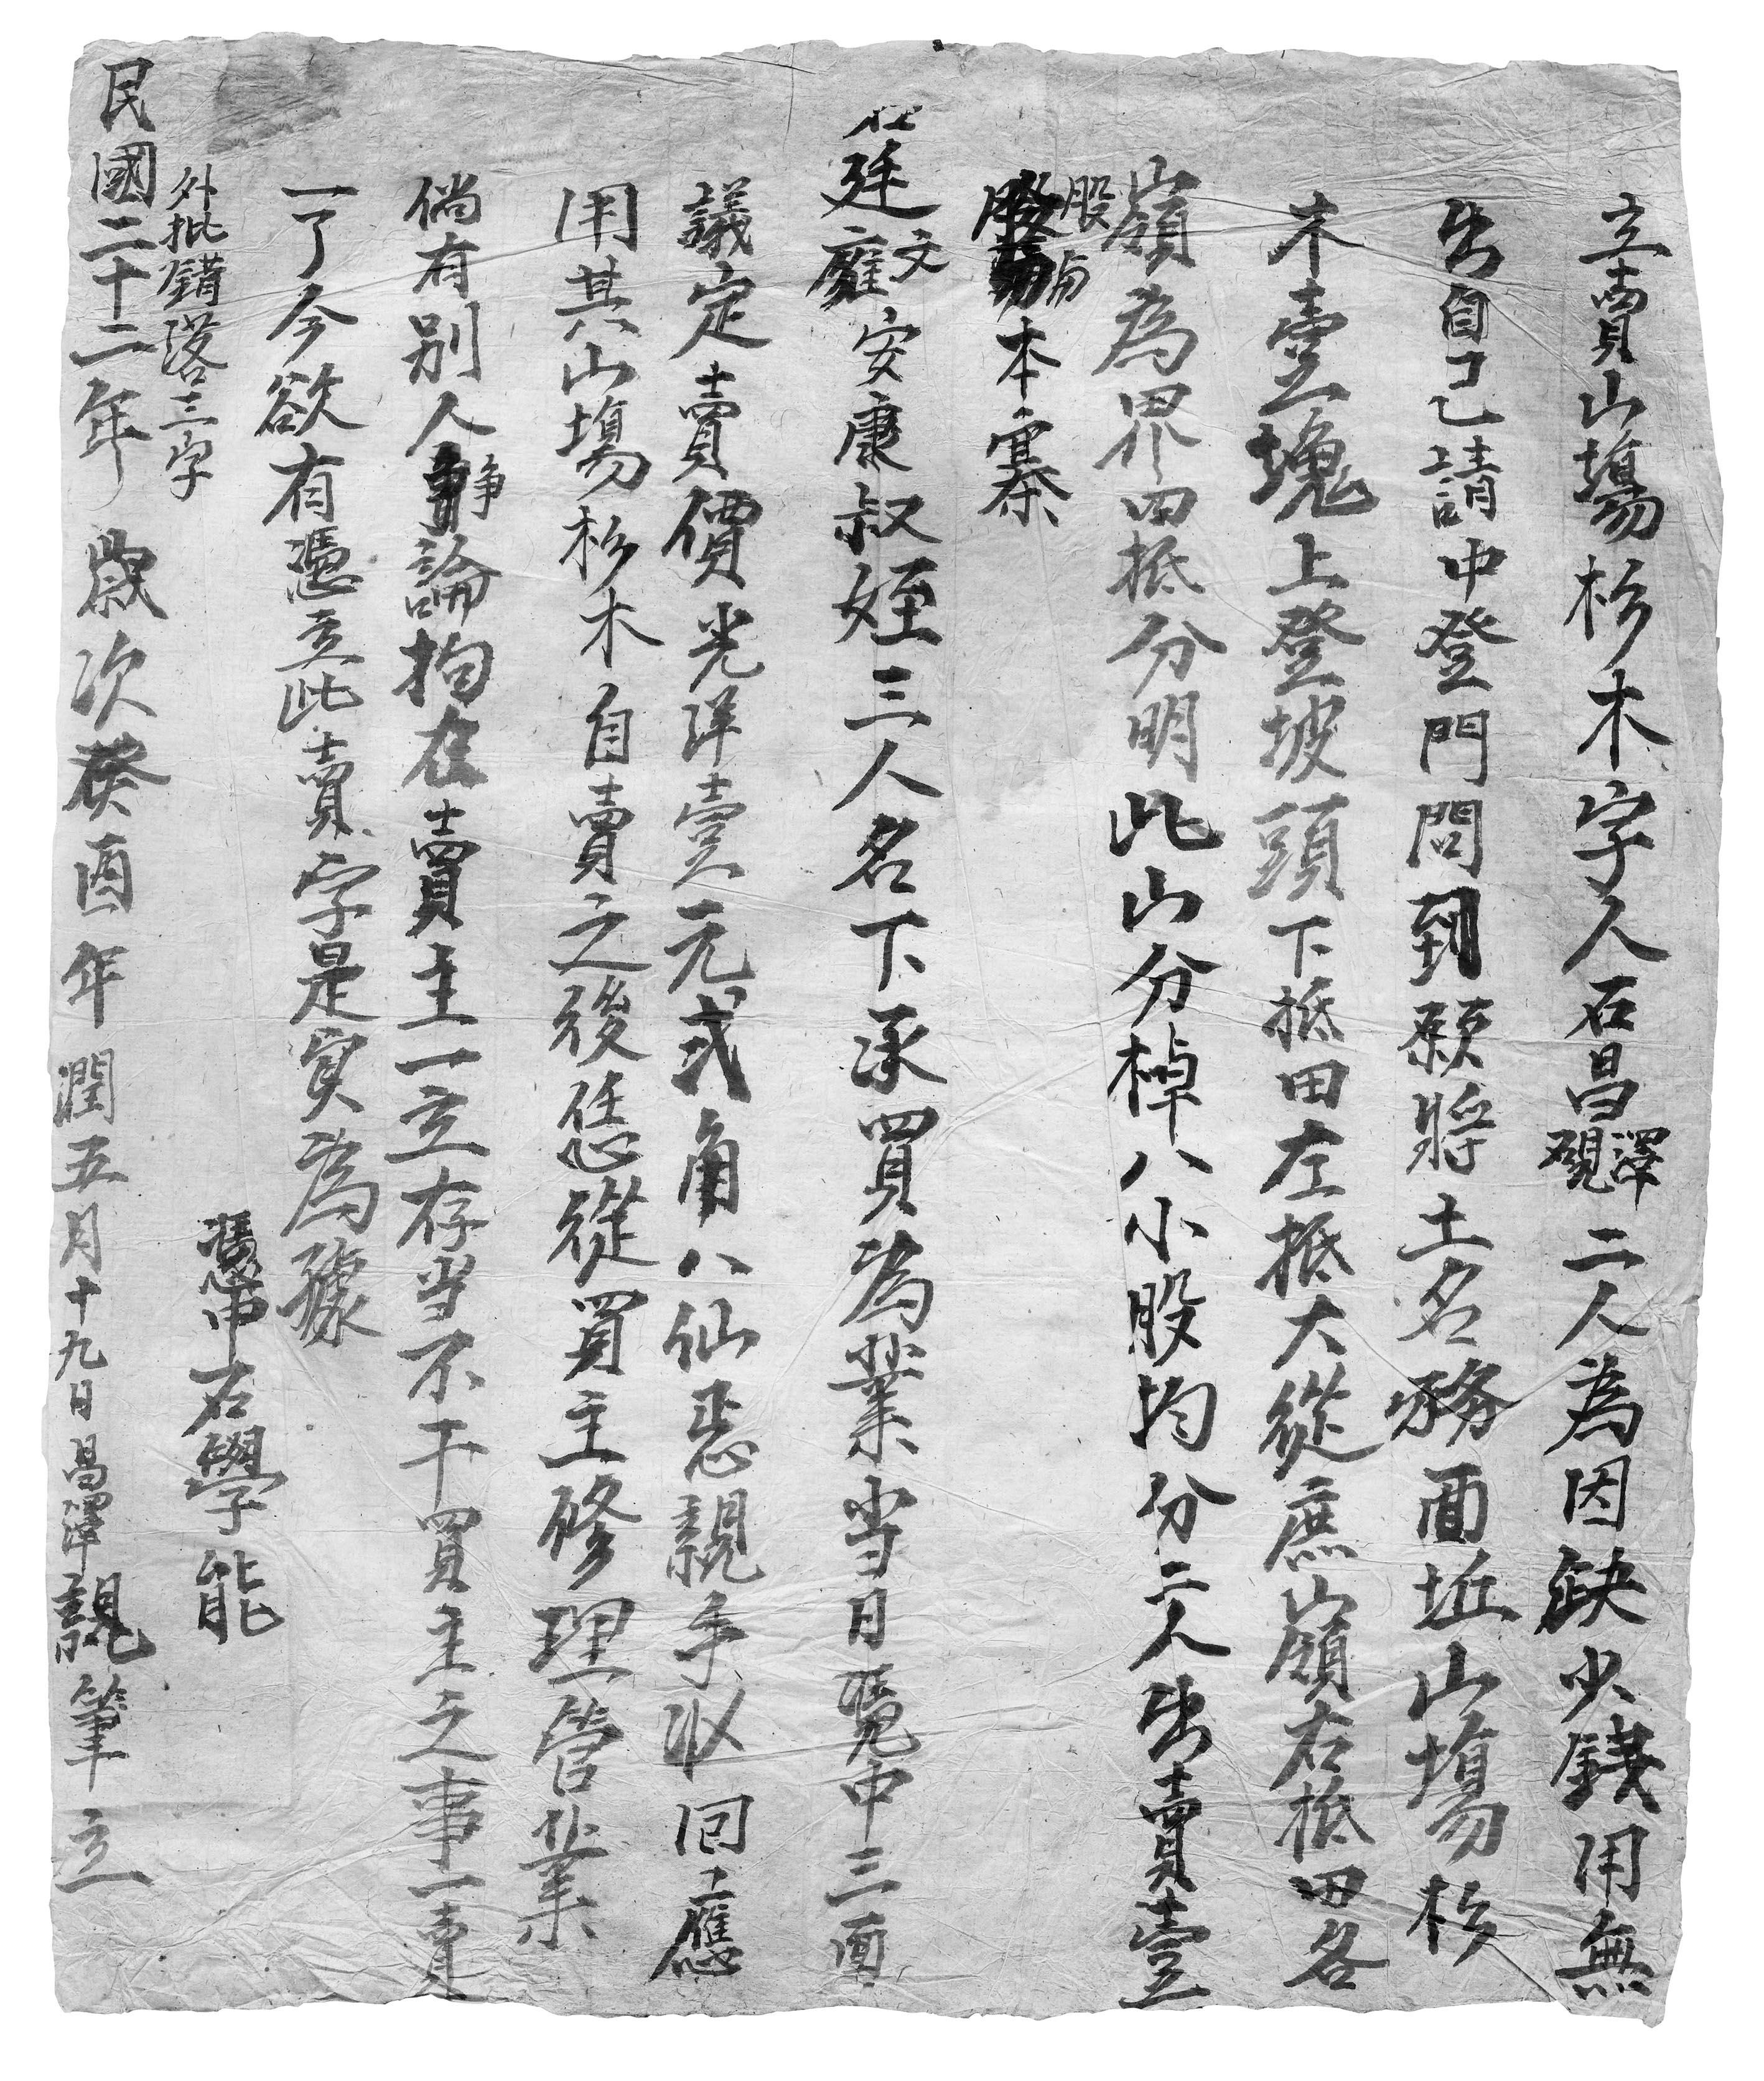 立賣山塲杉木字人石昌澤硯二人為因缺少錢用無
出自己請中登門問到願將土名務面坵山塲杉
木壹塊上登坡頭下抵田左抵大從庶山嶺右抵田各
嶺為界四抵分明此山分棹八小股均分二人出賣壹
股与本寨
石廷文廰安康叔姪三人名下承買為業当日憑中三面
議定賣價光洋壹元弍角八仙恶親手收回應
用其山塲杉木自賣之後恁從買主修理管業
倘有別人爭論拘在賣主一立存当不干買主之事一賣
一了今欲有憑立此賣字是實為據
憑中石學能
外批錯落三字
民國二十二年歲次癸酉年潤五月十九日昌澤親筆立